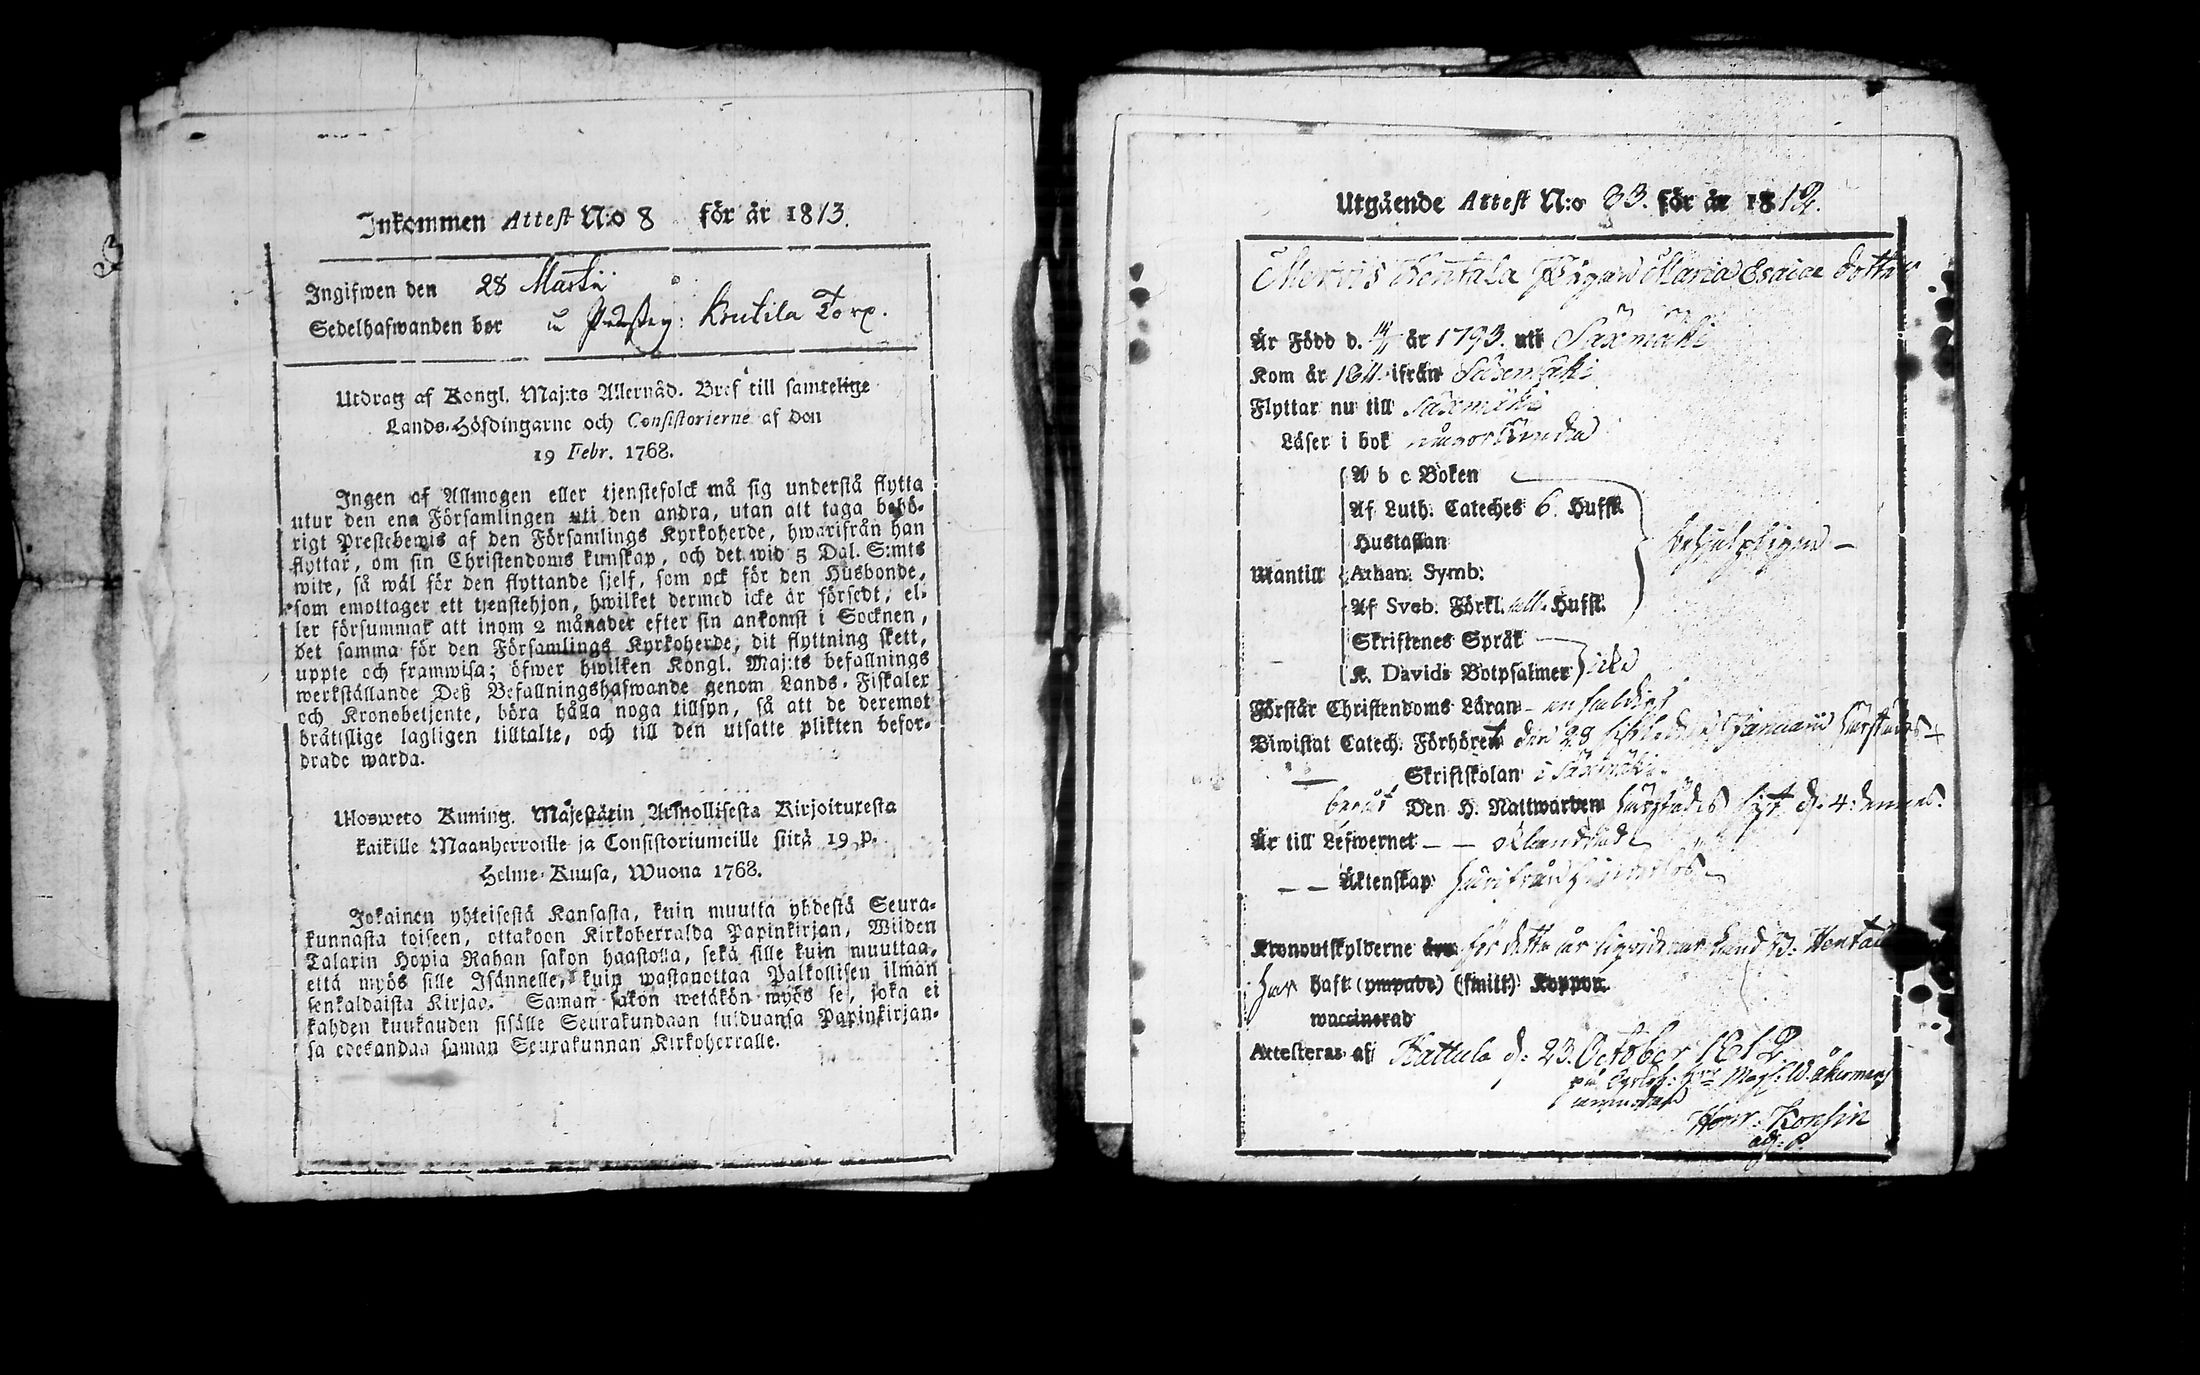 Inkommen Attest N:o 8 för år 1813.
Ingifwen den 28 Martii
Sedelhafwanden bor Krutila Torp.
Utdrag af Kongl. Maj:ts Allernåd. Bref till samtelige
Lands-Höfdingarne och Consistorierne af den
19 Febr. 1768.
Ingen af Allmogen eller tjenstefolck må sig understå flytta
utur den ena Församlingen uti den andra, utan att taga behö-
rigt Prestebewis af den Församlings Kyrkoherde, hwarifrån han
flyttar, om sin Christendoms kunskap, och det wid 5 Dal. S:mts
wite, så wäl för den flyttande sjelf, som ock för den Husbonde,
som emottager ett tjenstehjon, hwilket dermed icke är försedt, el-
ler försummar att inom 2 månader efter sin ankomst i Socknen,
det samma för den Församlings Kyrkoherde, dit flyttning skett,
uppte och framwisa; öfwer hwilken Kongl. Maj:ts befallnings
werkställande Deß Befallningshafwande genom Lands-Fiskaler
och Kronobetjente, böra hålla noga tillsyn, så att de deremot
bråttslige lagligen tilltalte, och till den utsatte plikten befor-
drade warda.
Ulosweto Kuning. Majestätin Armollisesta Kirjoituresta
kaikille Maanherroille ja Consistoriumeille siitä 19 p.
Helme-Kuusa, Wuona 1768.
Jokainen yhteisestä Kansasta, kuin muutta yhdestä Seura-
kunnasta toiseen, ottakoon Kirkoherralda Papinkirjan, Wiiden
Talarin Hopia Rahan sakon haastolla, sekä sille kuin muuttaa,
että myös sille Isännelle, kuin wastanottaa Palkollisen ilman
senkaldaista Kirjao. Saman sakon wetäkön myös se, joka ei
kahden kuukauden sisälle Seurakundaan tulduansa Papinkirjan-
sa edesandaa saman Seurakunnan Kirkoherralle.
Utgående Attest N:o 33. för år 1812.
Mervis Hentala Pigan Maria Esaiae dotter
Är Född d. år 1793. uti Säxmäki
Kom år 1811. ifrån Säxmäki
Flyttar nu till Säxmäki
Läser i bok någorlunda
A b c Boken
Af Luth. Cateches 6. Hufst.
Hustaflan
Mantill Athan. Symb:
Af Sveb. Förkl. all. Hufst.
Skriftenes Språk
K. Davids Botpsalmer
Förstår Christendoms Läran - enfaldigt
Biwistat Catech. Förhöret den 28 Januarii härstädes
Skriftskolan i Säxmäki
Den H. Nattwarden härstädes sist d. 4
Är till Lefwernet - -
- - Äktenskap
Kronoutskylderne för detta år
har haft (ympade) (smitt) Koppor.
waccinerad
Attesteras af Hattula d. 23. October 1812.
Henr. Konsin
adj. P.